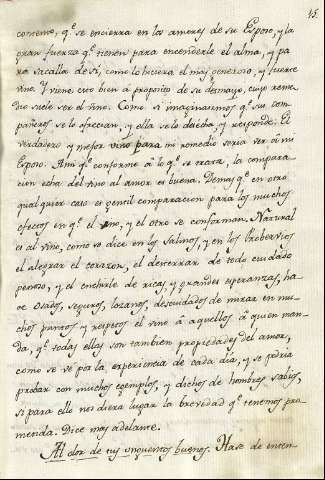 15.
contento, q.^e se encierra en los amores de su Esposo, y la
gran fuerza q.^e tienen para encenderle el alma, y pa
ra sacalla de sí, como lo hiciera el mas generoso, y fuerte
vino. Y viene esto bien á proposito de su desmayo, cuyo reme
dio suele ser el vino. Como si imaginasemos q.^e sus com
pañeras se lo ofrecian, y ella se lo desecha, y responde: El
verdadero y mejor vino para mi remedio seria ver á mi
Esposo. Ansi q.^e conforme á lo q.^e se trata, la compara
cion echa del vino al amor es buena. Demas q.^e en otro
qualquier caso es gentil comparacion para los muchos
efectos en q.^e el uno, y el otro se conforman. Natural
es al vino, como se dice en los Salmos, y en los Proberbios
el alegrar el corazon, el desterrar de todo cuidado
penoso, y el enchirle de ricas, y grandes esperanzas, ha
ce osados, seguros, lozanos, descuidados de mirar en mu
chos puntos y respetos el vino á aquellos á quien man
da, q.^e todas ellas son tambien propiedades del amor,
como se vé por la experiencia de cada dia, y se podria
probar con muchos exemplos, y dichos de hombres sabios,
si para ello nos diera lugar la brevedad q.^e tenemos pro
metida. Dice mas adelante.
Al olor de tus unguentos buenos. Hase de enten